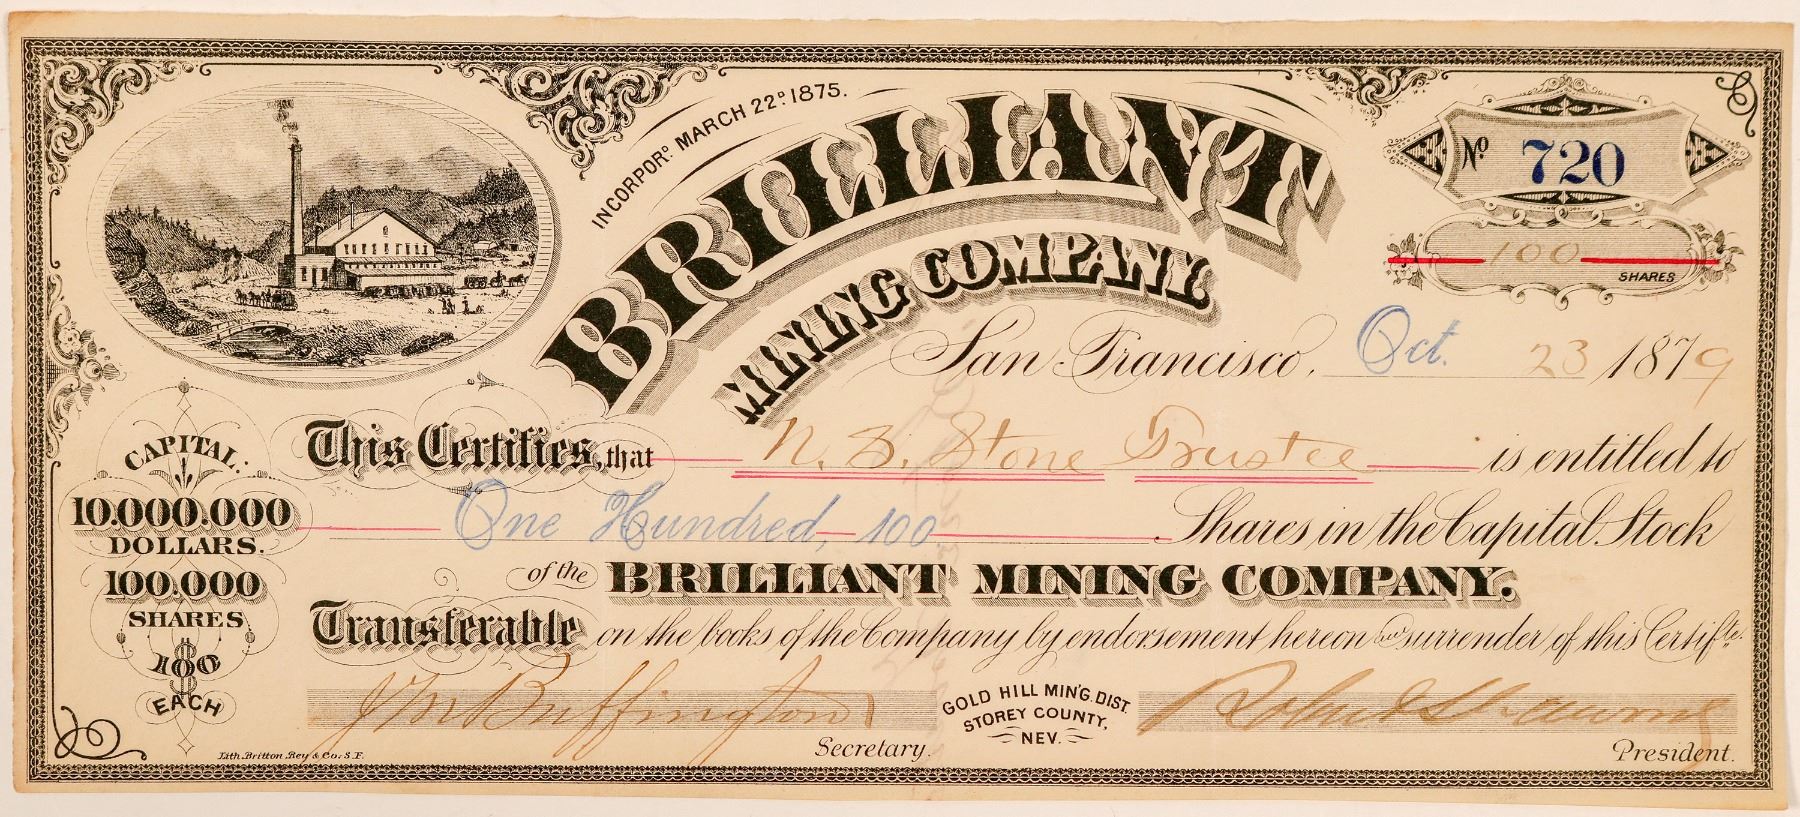 INCORPORD MARCH 22D 1875.
BRILLIANT
MINING COMPANY.
No 720
100
SHARES
San Francisco, Oct. 23 1879
CAPITAL:
10.000.000
DOLLARS.
100.000
SHARES
$100
EACH
This Certifies, that N. B. Stone Trustee is entitled to
One Hundred, 100 Shares in the Capital Stock
of the BRILLIANT MINING COMPANY.
Transferable on the books of the Company by endorsement hereon and surrender of this Certifte.
J M Buffington
Secretary.
GOLD HILL MIN'G. DIST.
STOREY COUNTY,
NEV.
President.
Lith. Britton Rey & Co: S.F.